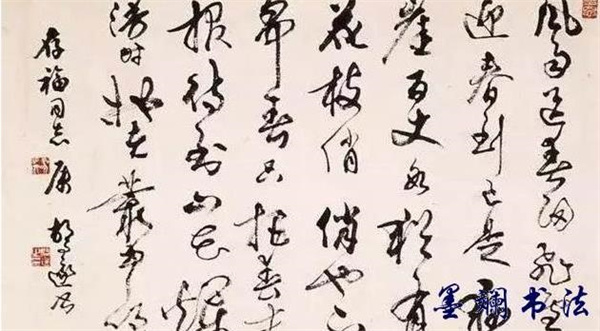 风雨送春归飞雪
迎春到已是悬
崖百丈冰犹有
花枝俏俏也不
争春只把春来
报待到山花烂
漫时她在丛中笑
存福同志属 胡问遂
书法